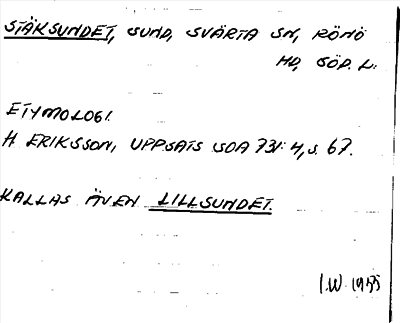 STÄKSUNDET, SUND, SVÄRTA SN, RÖNÖ
HD, SÖD. L.
ETYMOLOGI.
H. ERIKSSON, UPPSATS UOA 731:4, s. 67.
KALLAS ÄVEN LILLSUNDET.
I.W. 1955